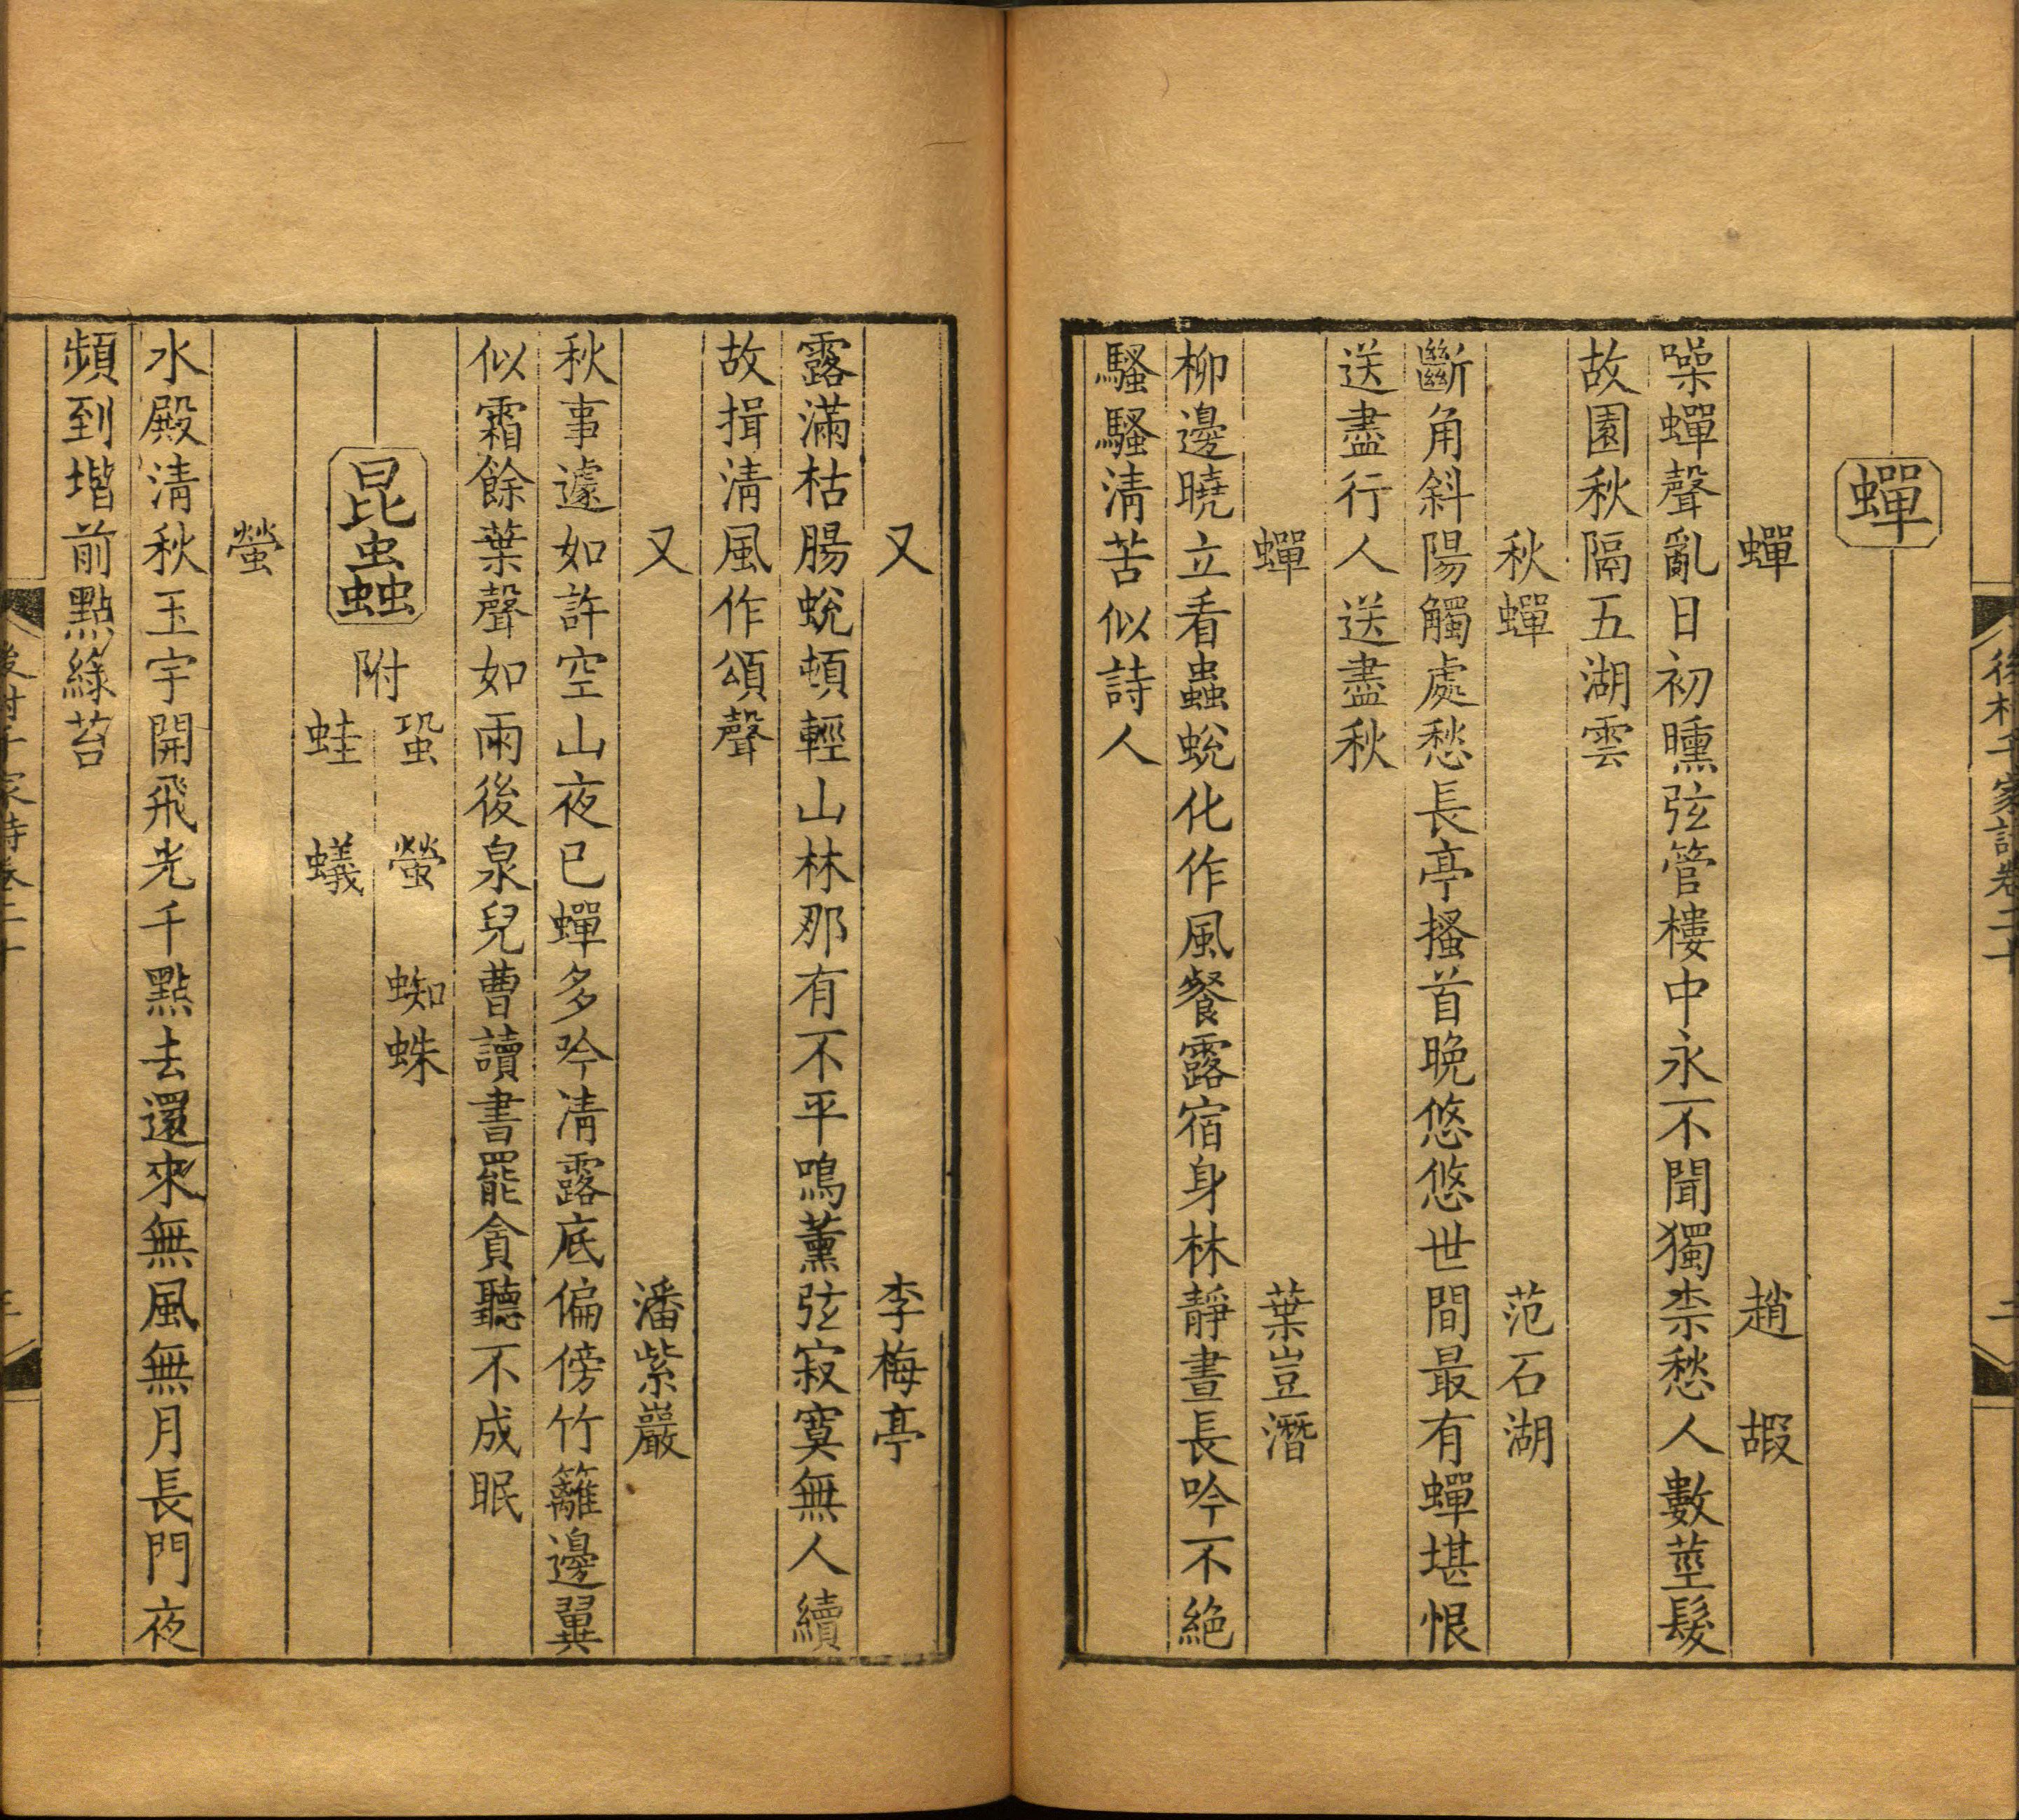 後村千家詩卷二十
二
蟬
蟬 趙嘏
噪蟬聲亂日初曛弦管樓中永不聞獨柰愁人數莖髮
故園秋隔五湖雲
秋蟬 范石湖
斷角斜陽觸處愁長亭搔首晚悠悠世間最有蟬堪恨
送盡行人送盡秋
蟬 葉豈潛
柳邊曉立看蟲蛻化作風餐露宿身林靜晝長吟不絶
騷騷淸苦似詩人
又 李梅亭
露滿枯腸蛻頓輕山林那有不平鳴薰弦寂寞無人續
故揖淸風作頌聲
又 潘紫巖
秋事遽如許空山夜已蟬多吟凊露底偏傍竹籬邊翼
似霜餘葉聲如雨後泉兒曹讀書罷貪聽不成眠
昆蟲 附 蛩 螢 蜘蛛
蛙 蟻
螢
水殿淸秋玉宇開飛光千點去還來無風無月長門夜
頻到堦前點綠苔
後村千家詩卷二十